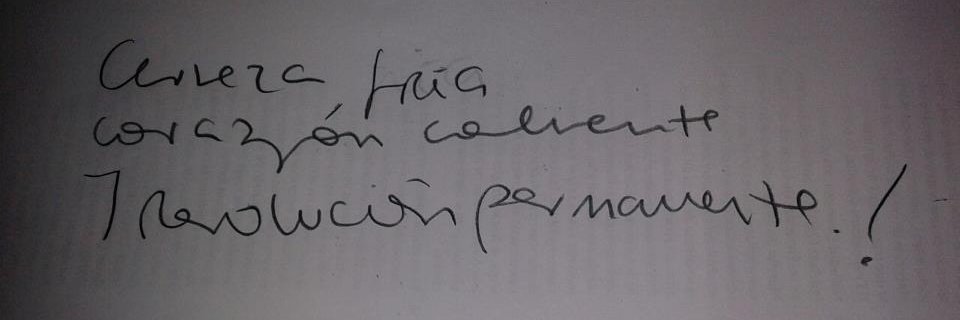 Cerveza fría
corazón caliente
¡ Revolución permanente. !